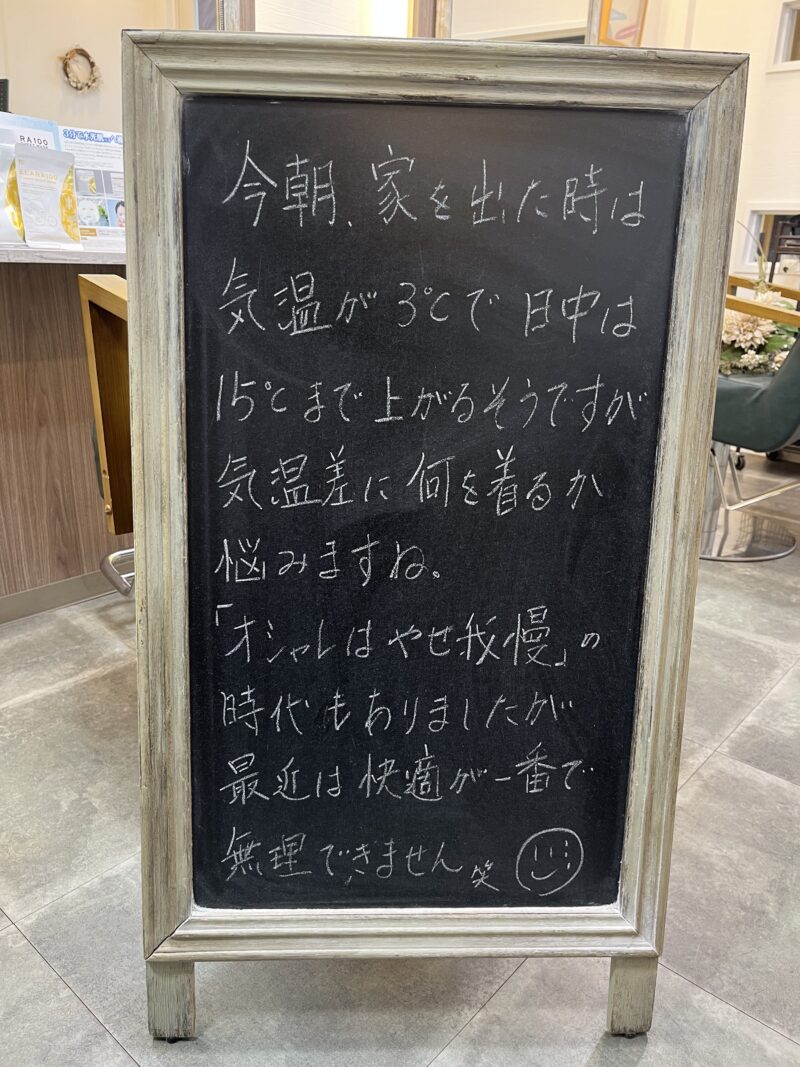 今朝、家を出た時は
気温が3℃で日中は
15℃まで上がるそうですが
気温差に何を着るか
悩みますね。
「オシャレはやせ我慢」の
時代もありましたが
最近は快適が一番で
無理できません。笑
RA100